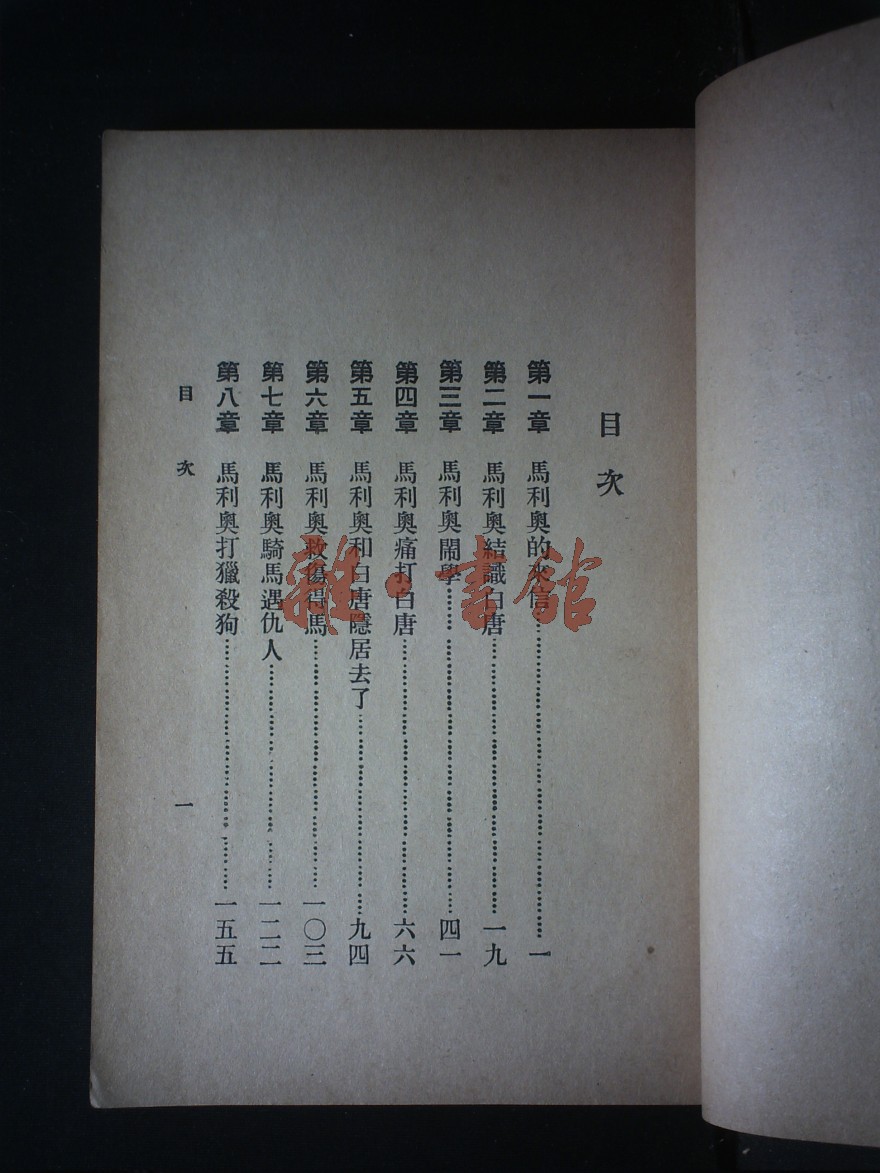 目次
第一章　馬利奧的來信……一
第二章　馬利奧結識白唐……一九
第三章　馬利奧鬧學……四一
第四章　馬利奧痛打白唐……六六
第五章　馬利奧和白唐隱居去了……九四
第六章　馬利奧救傷得馬……一〇三
第七章　馬利奧騎馬遇仇人……一二二
第八章　馬利奧打獵殺狗……一五五
目次　一
雜·書館